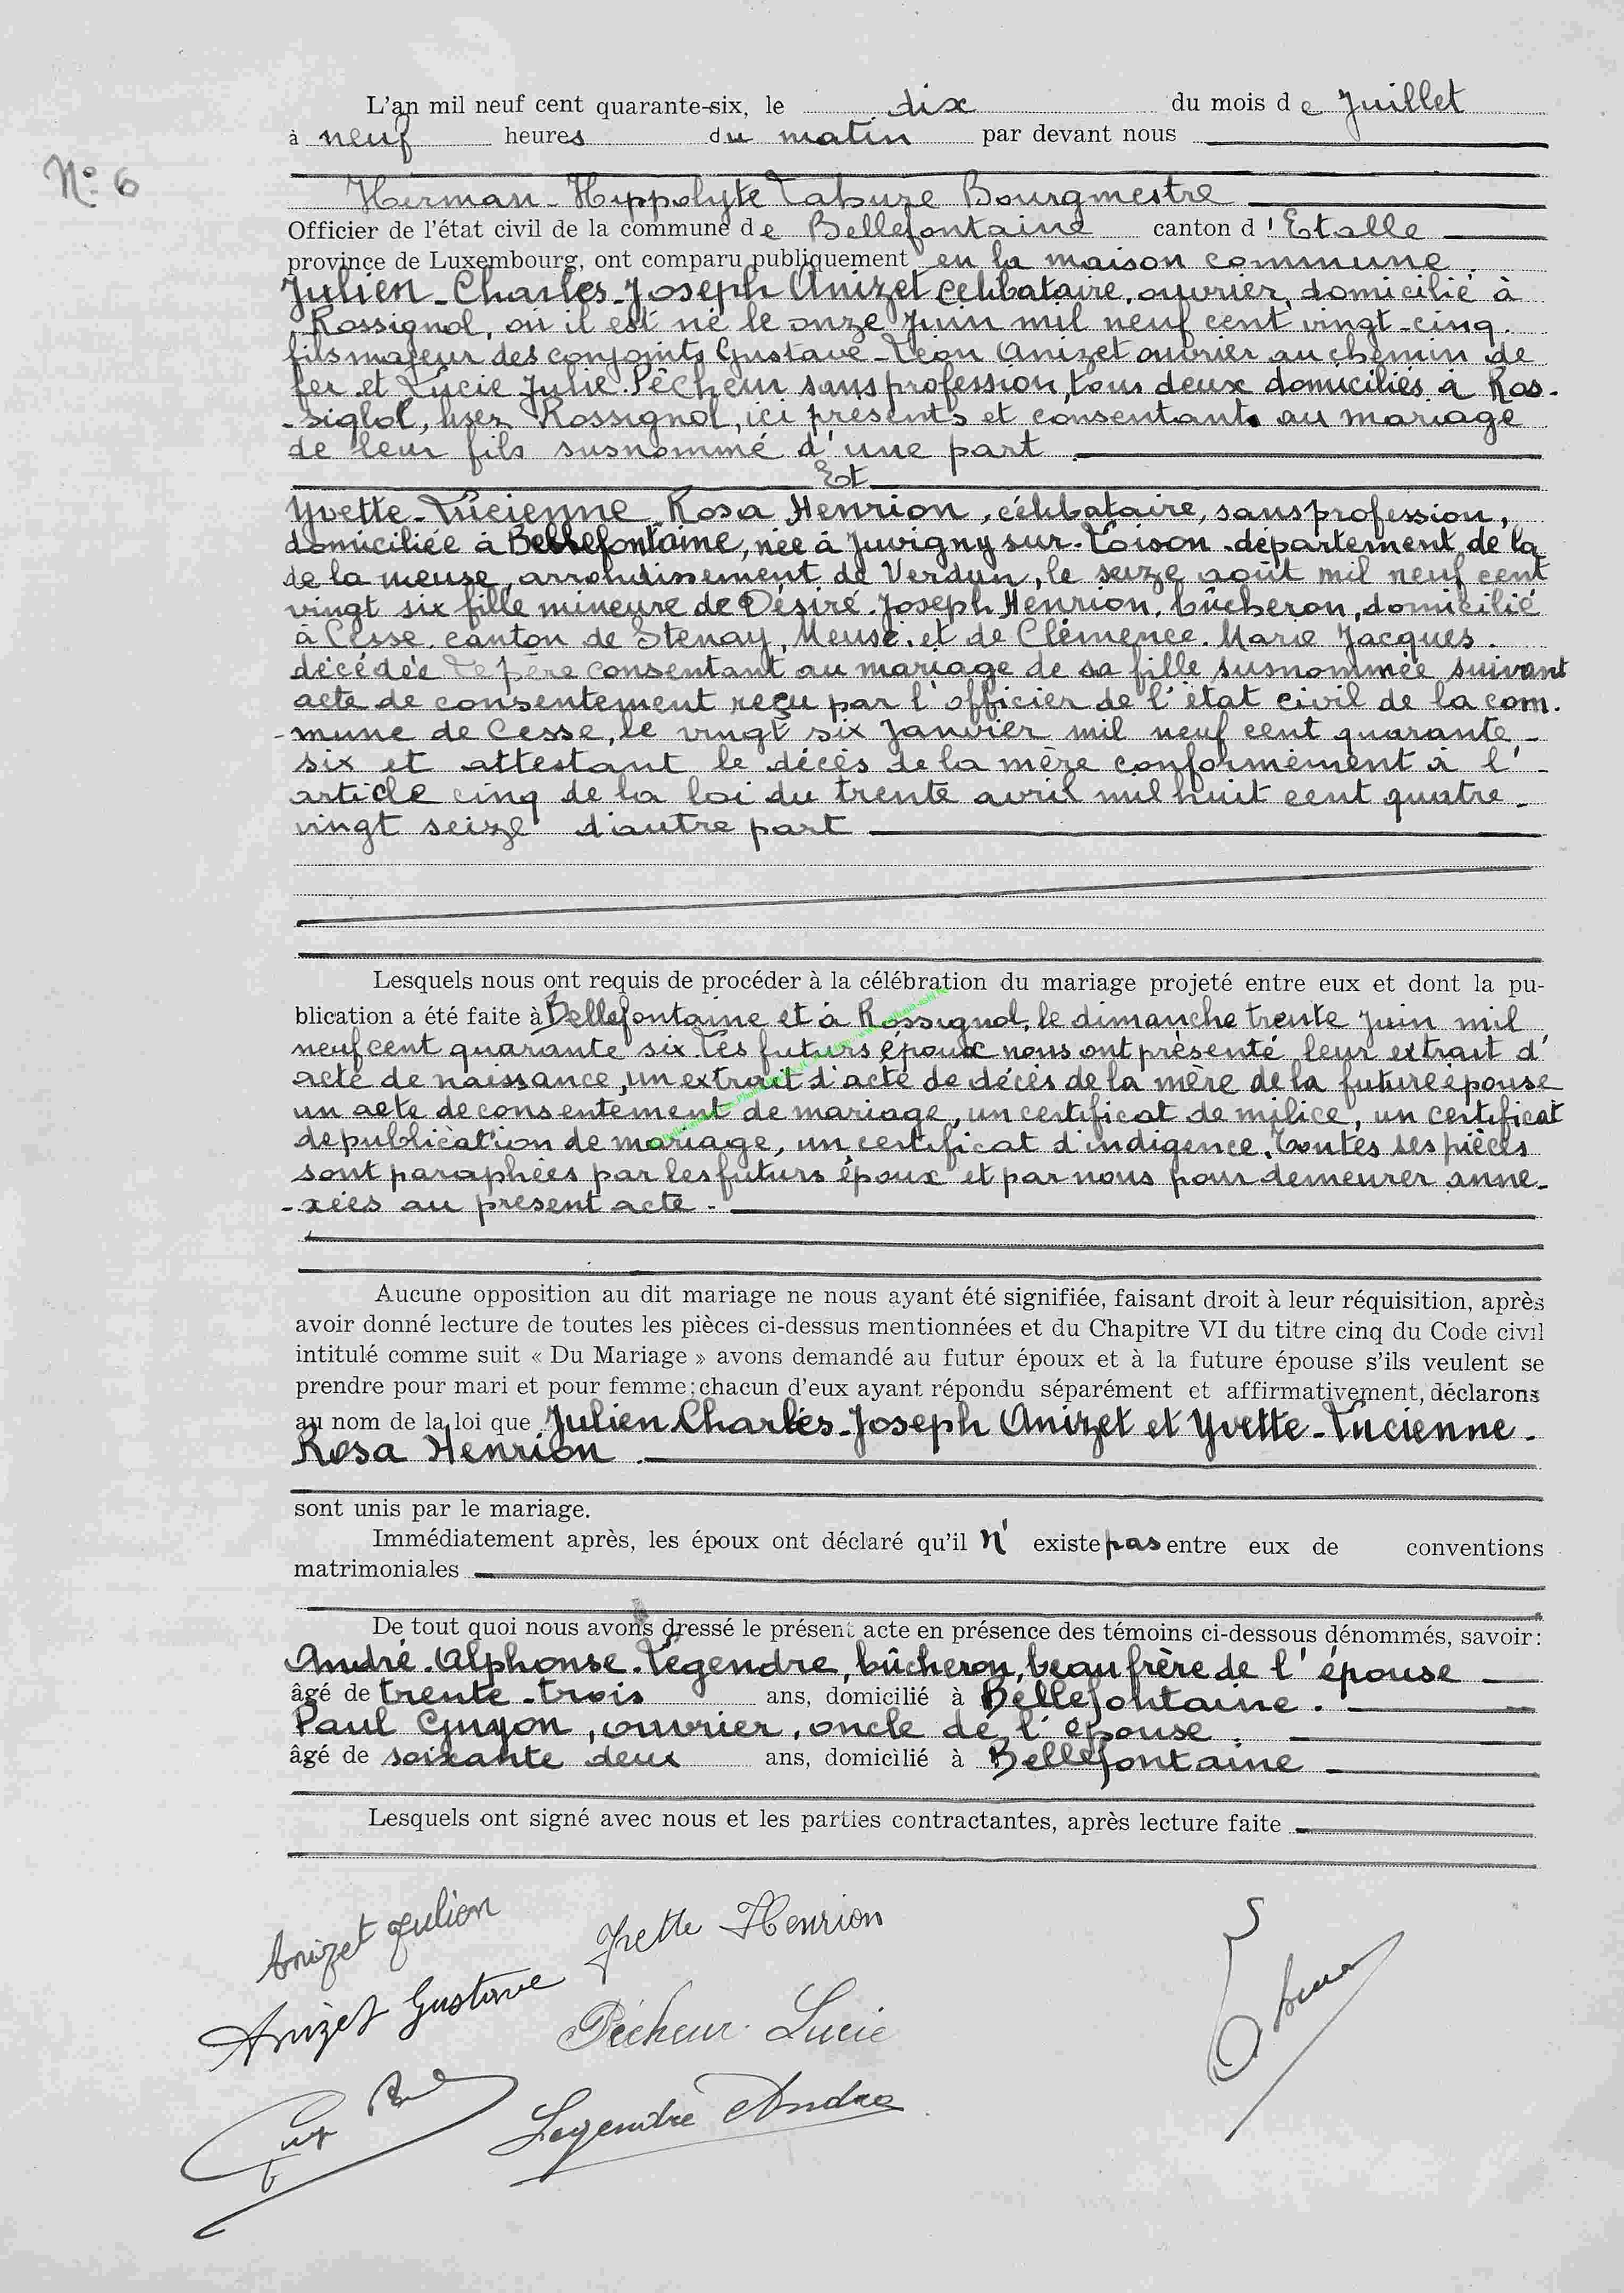 L'an mil neuf cent quarante-six, le dix du mois de Juillet
à neuf heures du matin par devant nous
N° 6
Herman-Hippolyte Labure Bourgmestre
Officier de l'état civil de la commune de Bellefontaine canton d'Etalle
province de Luxembourg, ont comparu publiquement en la maison commune
Julien-Charles-Joseph Anizet célibataire, ouvrier, domicilié à
Rossignol, où il est né le onze Juin mil neuf cent vingt-cinq.
fils majeur des conjoints Gustave-Léon Anizet ouvrier au chemin de
fer et Lucie Julie Pêcheur sans profession, tous deux domiciliés à Ros-
-siglol, lisez Rossignol, ici présents et consentants au mariage
de leur fils susnommé d'une part
Et
Yvette-Lucienne Rosa Henrion, célibataire, sans profession,
domiciliée à Bellefontaine, née à Juvigny sur-Loison département de la
de la meuse, arrondissement de Verdun, le seize août mil neuf cent
vingt six fille mineure de Désiré-Joseph Henrion, bûcheron, domicilié
à Cesse, canton de Stenay, Meuse, et de Clémence-Marie Jacques.
décédée Le père consentant au mariage de sa fille susnommée suivant
acte de consentement reçu par l'officier de l'état civil de la com.
-mune de Cesse, le vingt six Janvier mil neuf cent quarante-
six et attestant le décès de la mère conformément à l'-
article cinq de la loi du trente avril mil huit cent quatre-
vingt seize d'autre part
Lesquels nous ont requis de procéder à la célébration du mariage projeté entre eux et dont la pu-
blication a été faite à Bellefontaine et à Rossignol, le dimanche trente Juin mil
neuf cent quarante six Les futurs époux nous ont présenté leur extrait d'
acte de naissance, un extrait d'acte de décès de la mère de la future épouse
un acte de consentement de mariage, un certificat de milice, un certificat
de publication de mariage, un certificat d'indigence. Toutes ses pièces
sont paraphées par les futurs époux et par nous pour demeurer anne-
-xées au présent acte -
Aucune opposition au dit mariage ne nous ayant été signifiée, faisant droit à leur réquisition, après
avoir donné lecture de toutes les pièces ci-dessus mentionnées et du Chapitre VI du titre cinq du Code civil
intitulé comme suit « Du Mariage » avons demandé au futur époux et à la future épouse s'ils veulent se
prendre pour mari et pour femme; chacun d'eux ayant répondu séparément et affirmativement, déclarons
au nom de la loi que Julien Charles-Joseph Anizet et Yvette-Lucienne-
Rosa Henrion
sont unis par le mariage.
Immédiatement après, les époux ont déclaré qu'il n'existe pas entre eux de conventions
matrimoniales
De tout quoi nous avons dressé le présent acte en présence des témoins ci-dessous dénommés, savoir:
André-Alphonse-Legendre, bûcheron, beau frère de l'épouse
âgé de trente-trois ans, domicilié à Bellefontaine.
Paul Guyon, ouvrier, oncle de l'épouse.
âgé de soixante deux ans, domicilié à Bellefontaine
Lesquels ont signé avec nous et les parties contractantes, après lecture faite
Anizet Julien Yvette Henrion
Anizet Gustave Pêcheur Lucie
Legendre André